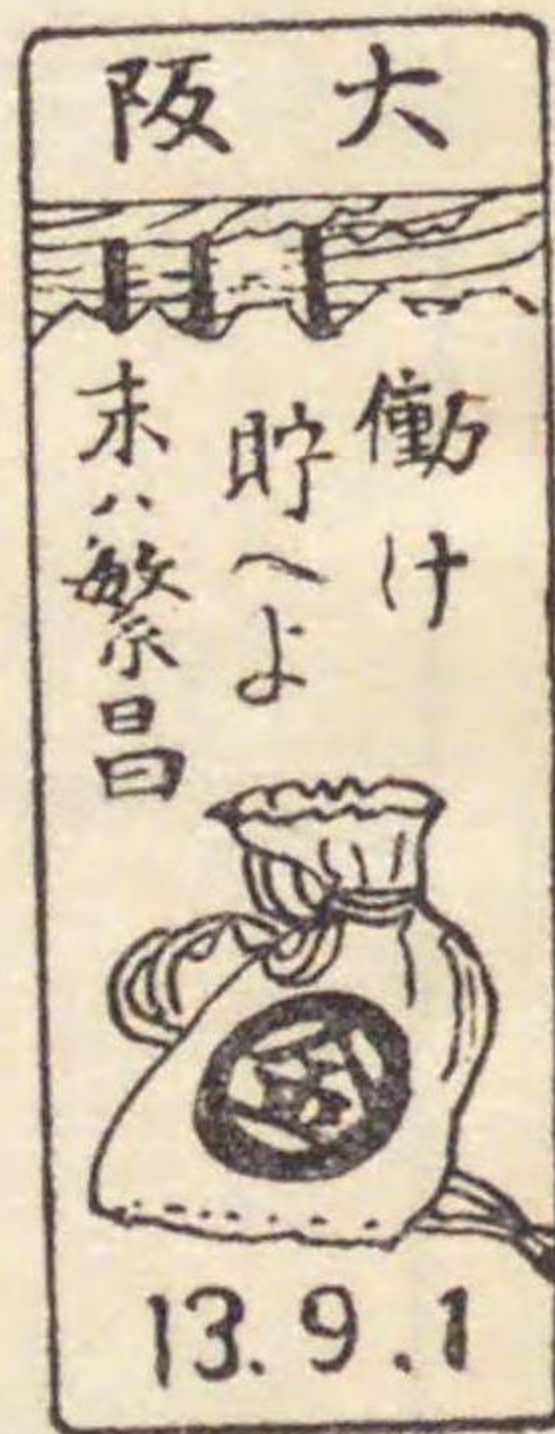 大阪
働け
貯へよ
末ハ繁昌
13.9.1